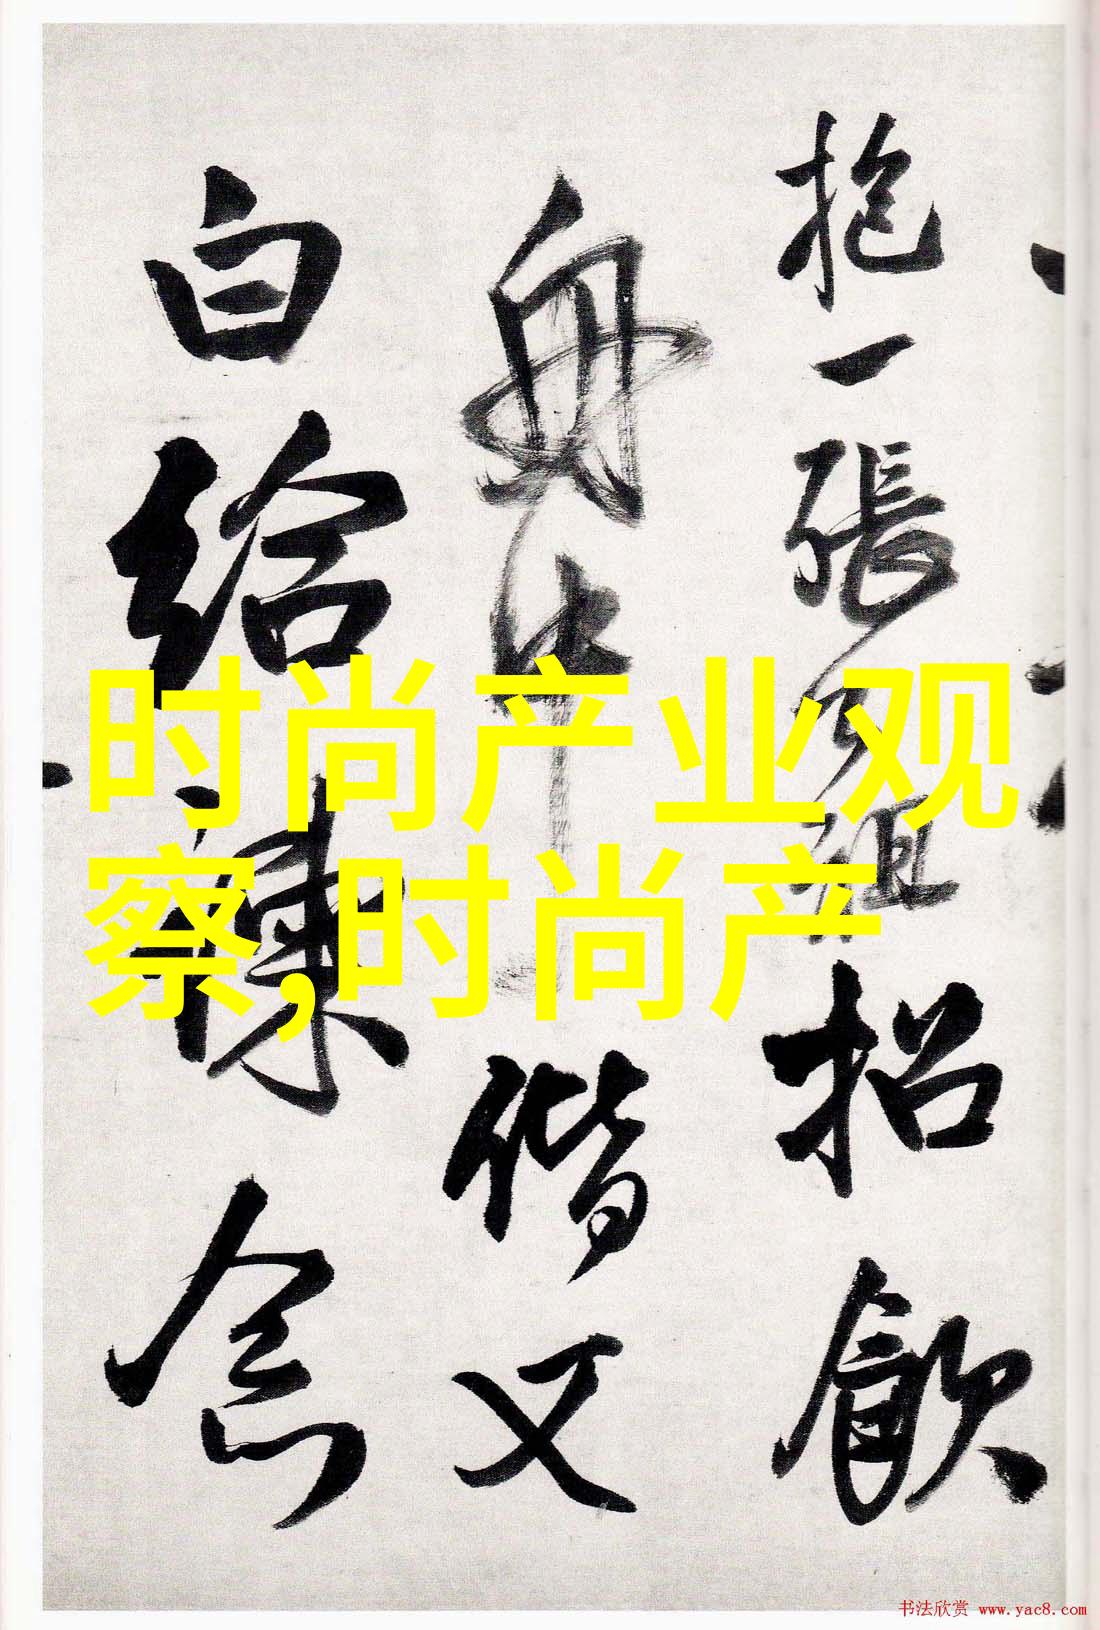 抱一張組招飲
舟中偕又
白給諫念
时尚产业观
察,时尚产
书法欣赏 www.yac8.com